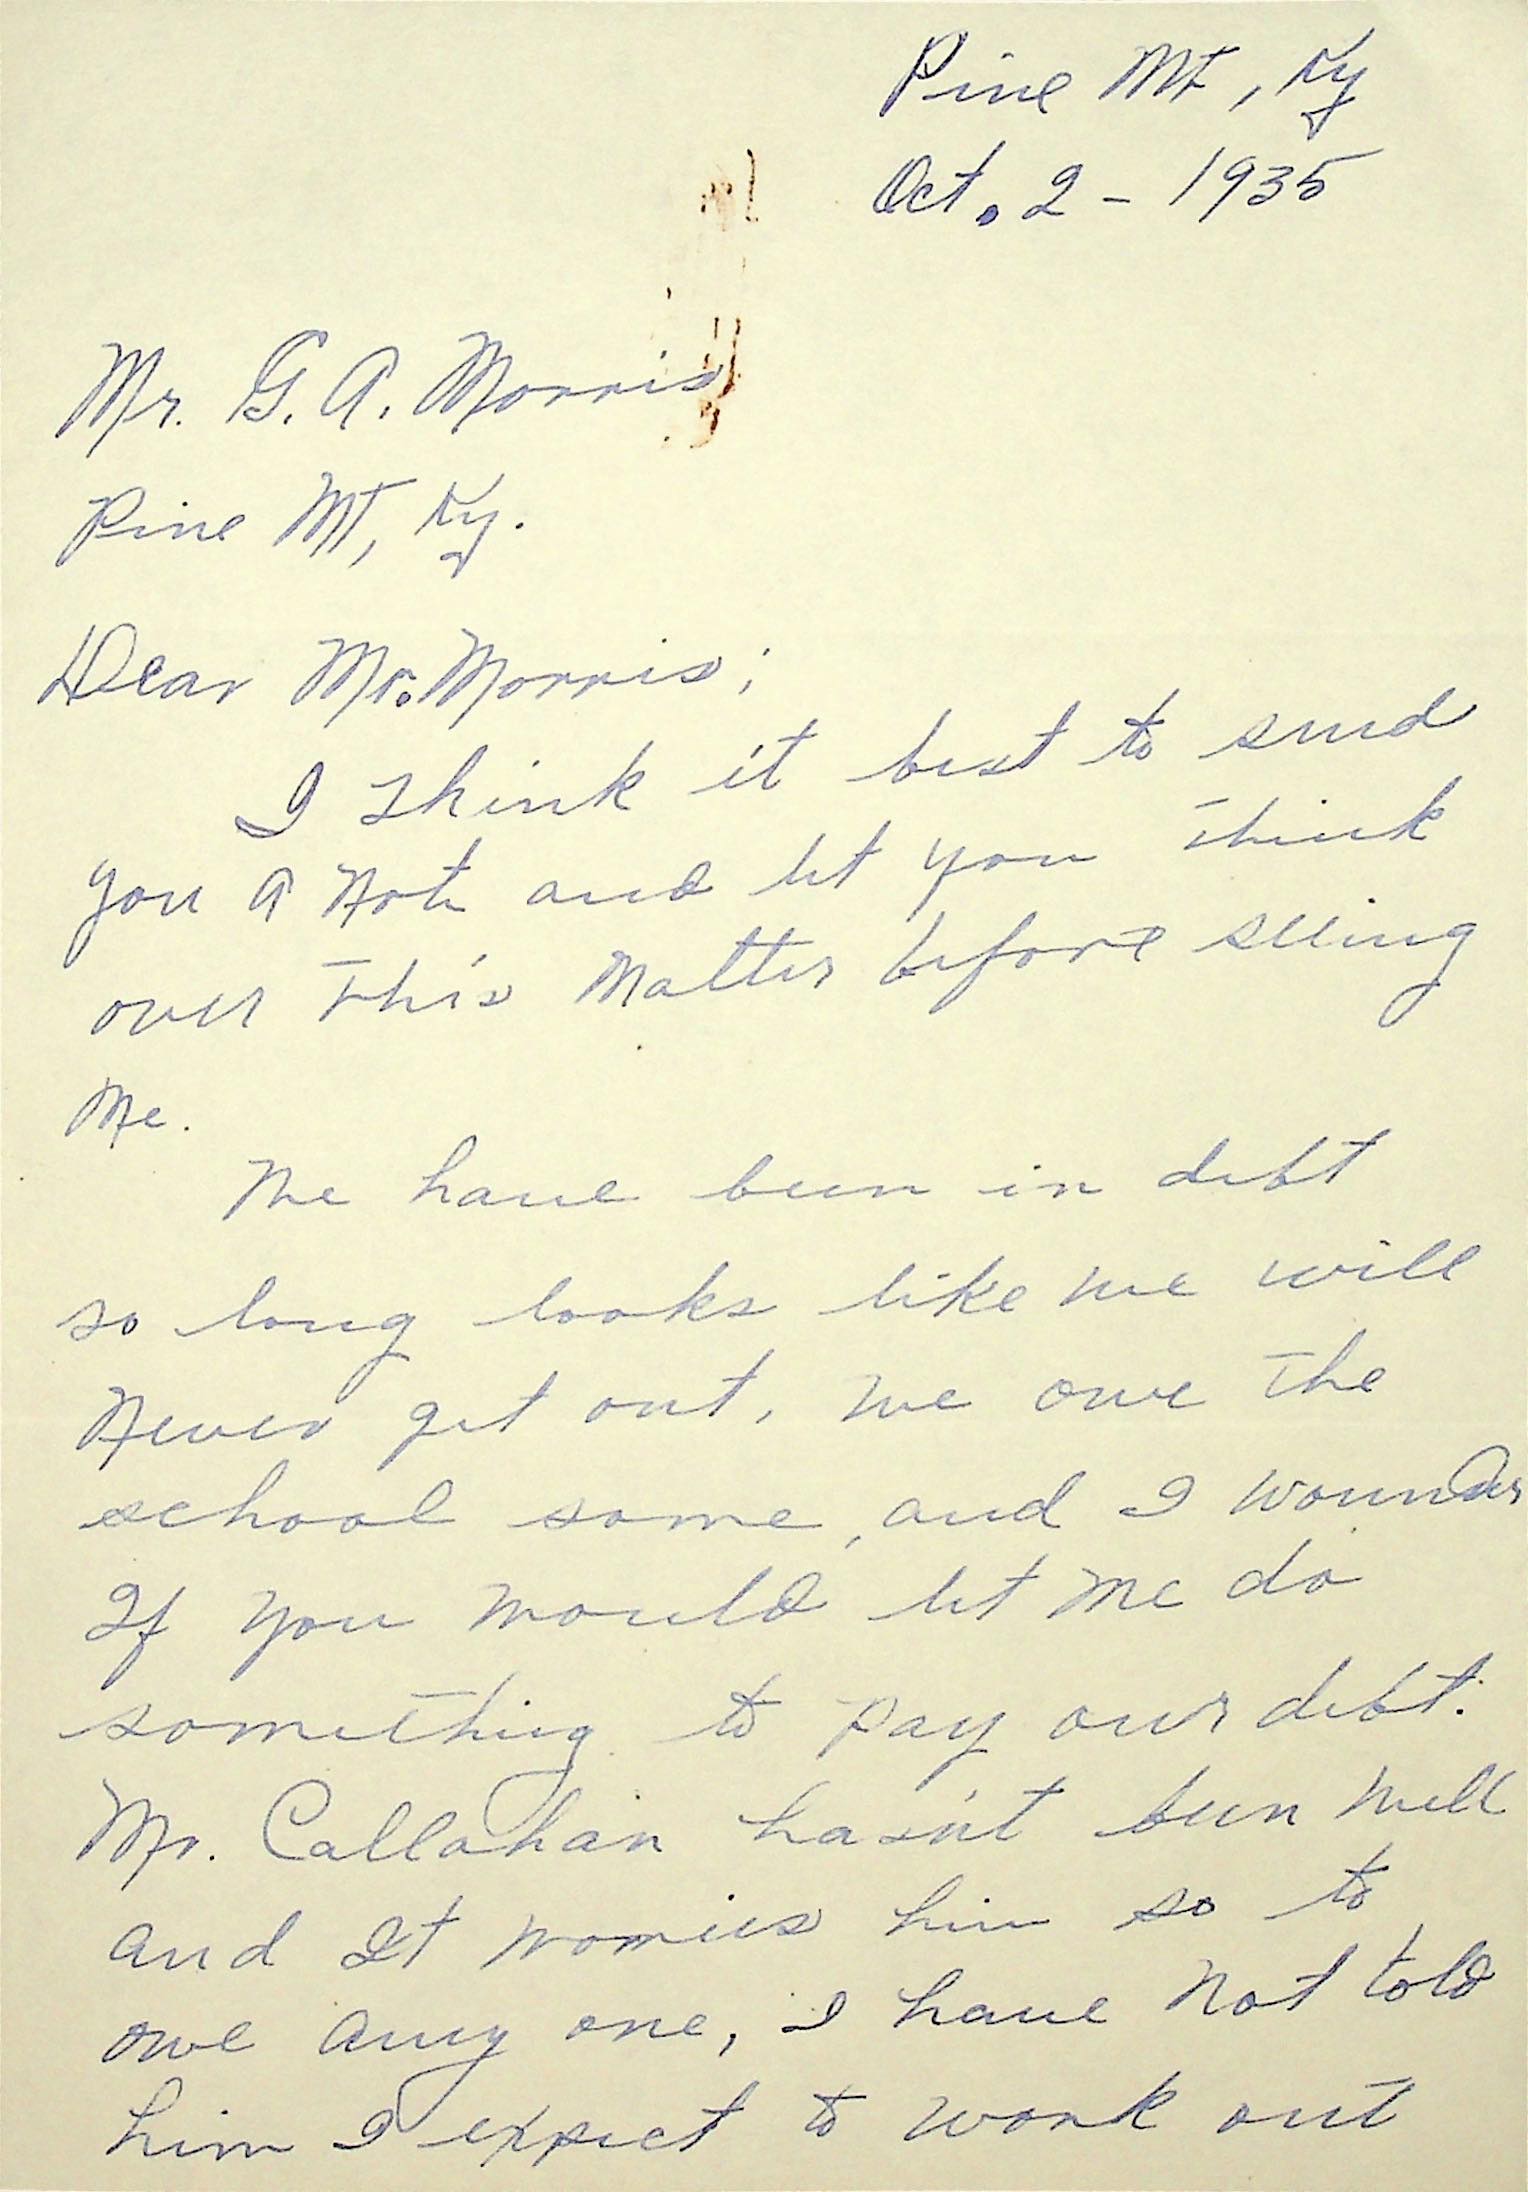 Pine Mt, Ky
Oct. 2 - 1935
Mr. G. A. Morris
Pine Mt, Ky.
Dear Mr. Morris;
I think it best to send
you a Note and let you think
over this Matter before seeing
Me.
We have been in debt
so long looks like we will
Never get out, we owe the
school some, and I wounder
If you would let me do
something to pay our debt.
Mr. Callahan hasn't been well
and It worries him so to
owe any one, I have Not told
him I expect to work out